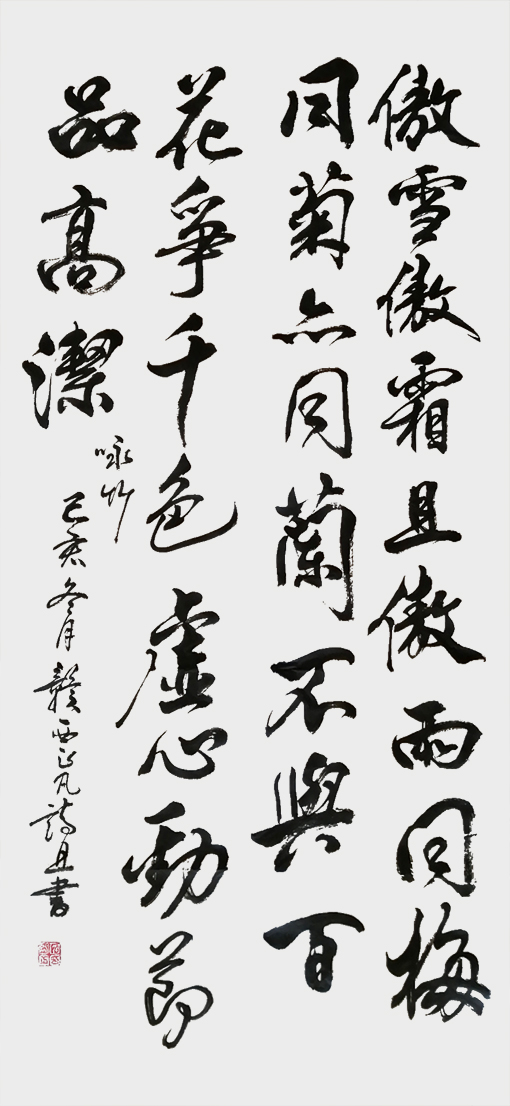 傲雪傲霜且傲雨同梅
同菊亦同蘭不與百
花爭千色虛心勁節
品高潔
咏竹
己亥冬月贛西正凡詩且書